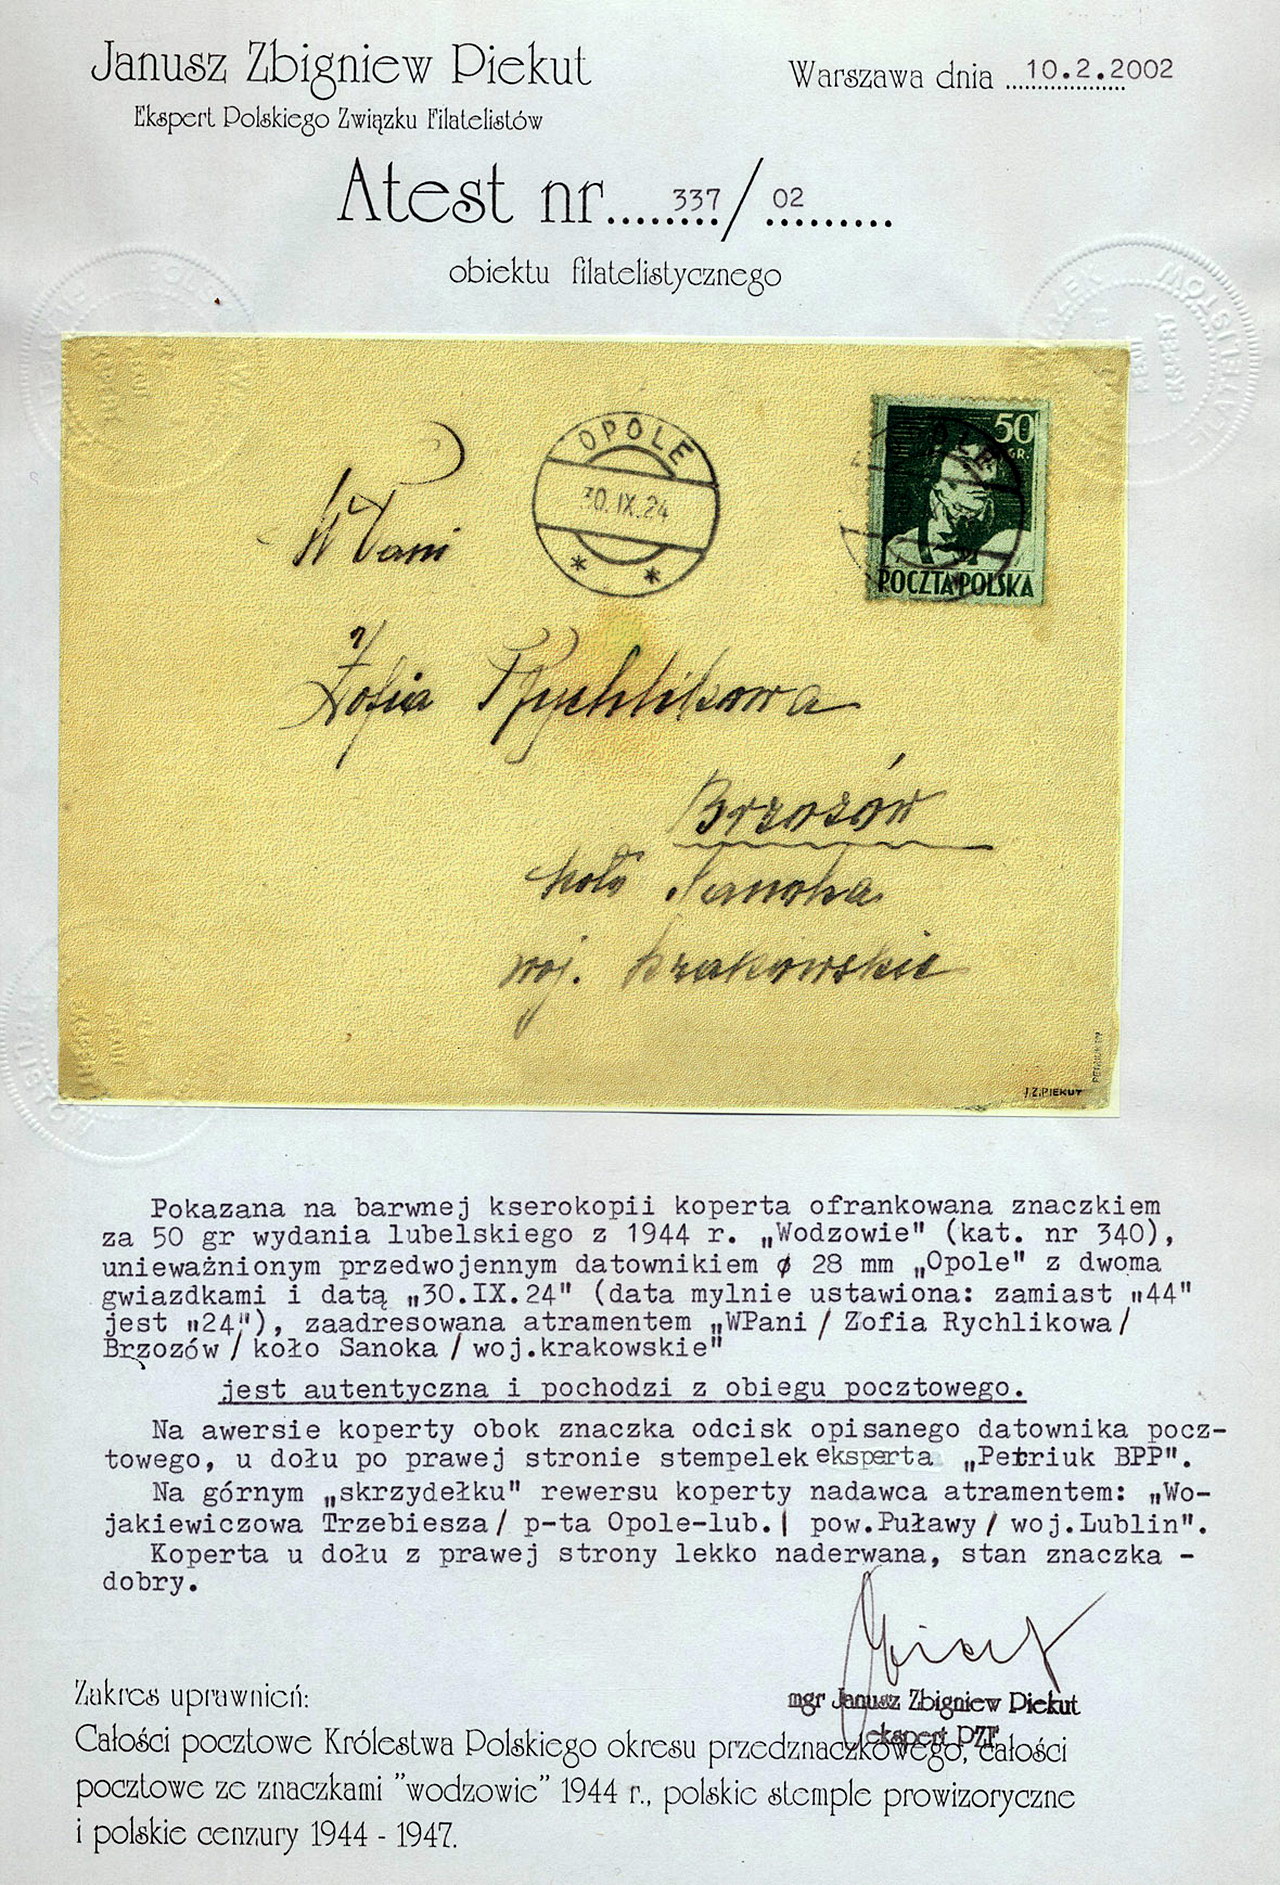 Janusz Zbigniew Piekut
Warszawa dnia 10.2.2002
Ekspert Polskiego Związku Filatelistów
Atest nr........337/..02.........
obiektu filatelistycznego
OPOLE
30.IX.24
50
GR.
POCZTA POLSKA
WPani
Zofia Rychlikowa
Brzozów
koło Sanoka
woj. krakowskie
J.Z.PIEKUT
Pokazana na barwnej kserokopii koperta ofrankowana znaczkiem
za 50 gr wydania lubelskiego z 1944 r. „Wodzowie" (kat. nr 340),
unieważnionym przedwojennym datownikiem ø 28 mm „Opole" z dwoma
gwiazdkami i datą „30.IX.24" (data mylnie ustawiona: zamiast „44"
jest „24"), zaadresowana atramentem „WPani / Zofia Rychlikowa/
Brzozów / koło Sanoka / woj.krakowskie"
jest autentyczna i pochodzi z obiegu pocztowego.
Na awersie koperty obok znaczka odcisk opisanego datownika pocz-
towego, u dołu po prawej stronie stempelek eksperta „Petriuk BPP".
Na górnym „skrzydełku" rewersu koperty nadawca atramentem: „Wo-
jakiewiczowa Trzebiesza/ p-ta Opole-lub.| pow.Puławy / woj.Lublin".
Koperta u dołu z prawej strony lekko naderwana, stan znaczka -
dobry.
mgr Janusz Zbigniew Piekut
ekspert PZF
Zakres uprawnień:
Całości pocztowe Królestwa Polskiego okresu przedznaczkowego, całości
pocztowe ze znaczkami "wodzowie" 1944 r., polskie stemple prowizoryczne
i polskie cenzury 1944 - 1947.